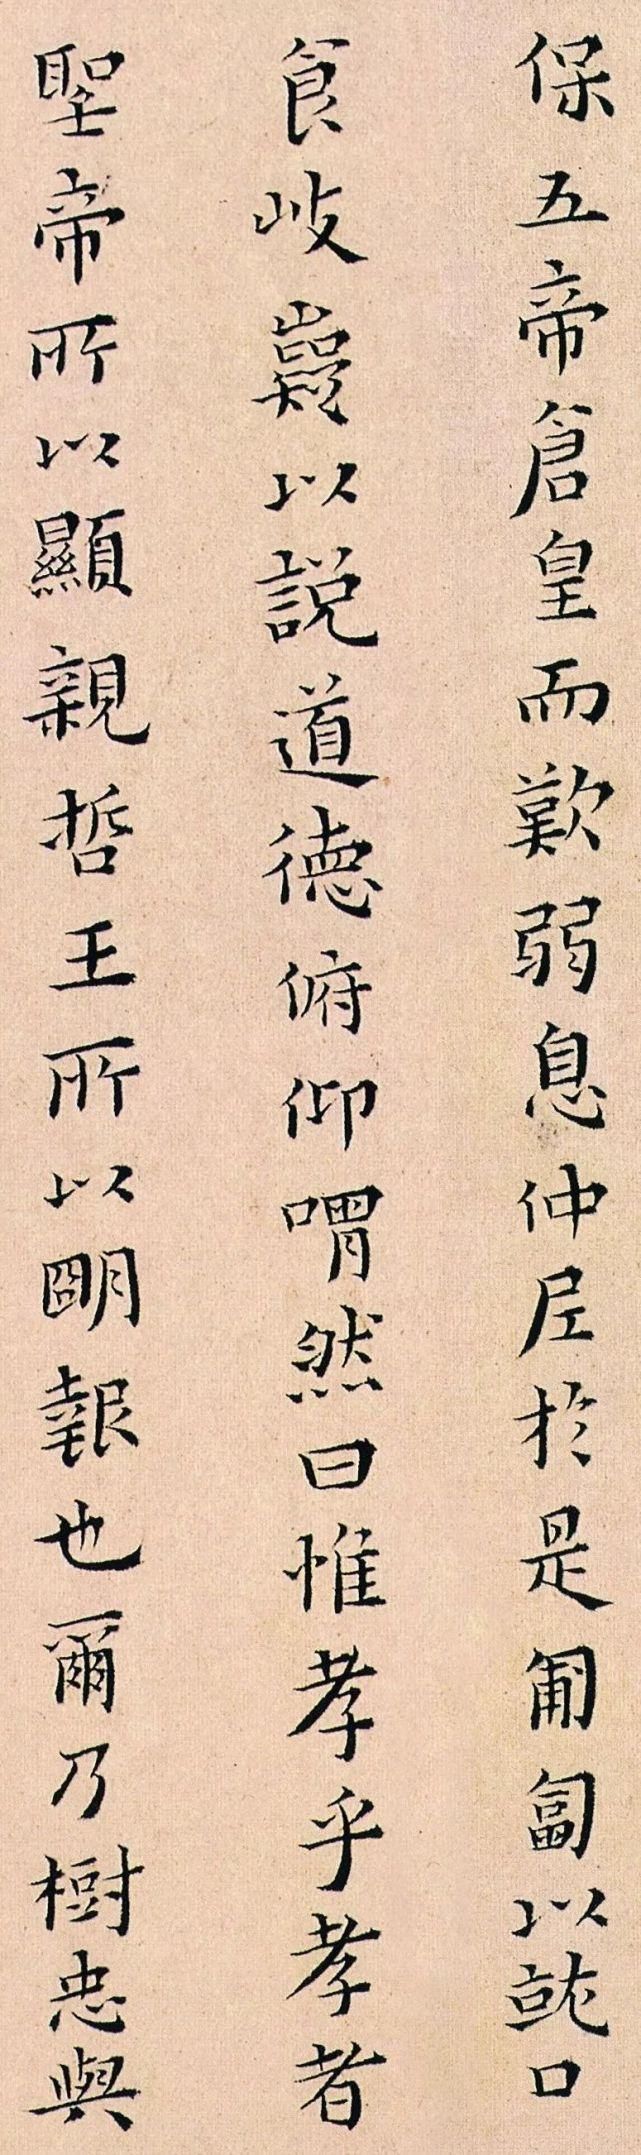 保五帝倉皇而歎弱息仲尼於是匍匐以就口
食岐嶷以說道德俯仰喟然曰惟孝乎孝者
聖帝所以顯親哲王所以明報也爾乃樹忠與